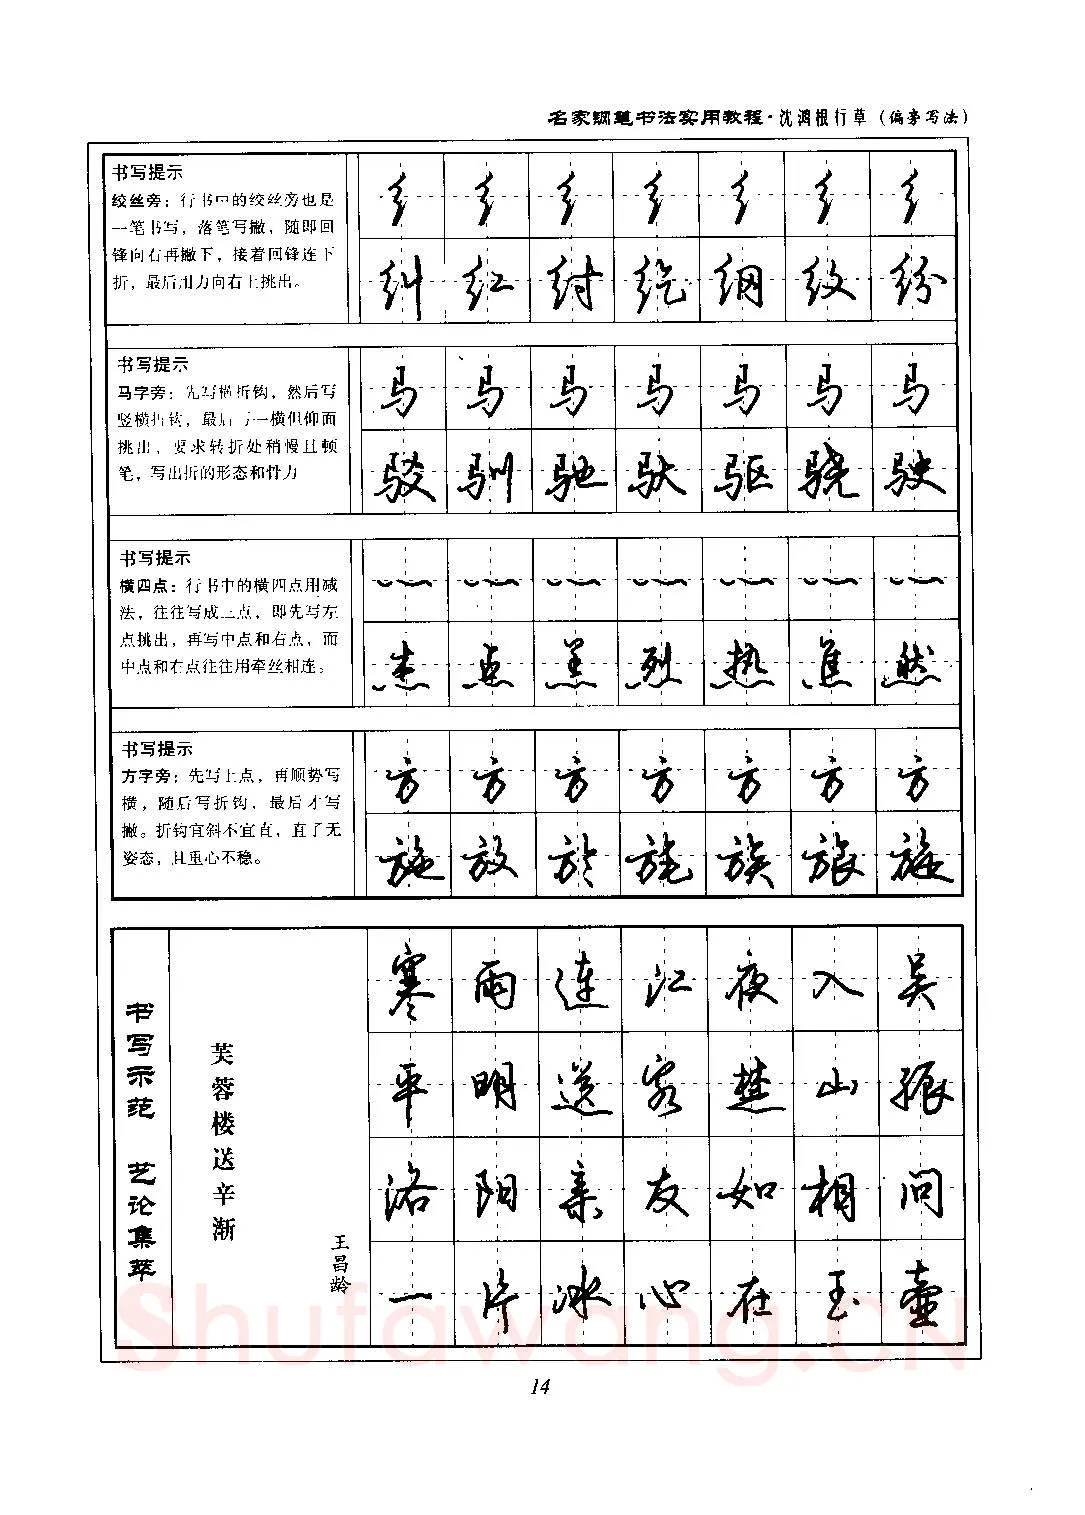 名家钢笔书法实用教程·沈鸿根行草(偏旁写法)
书写提示
绞丝旁：行书中的绞丝旁也是
一笔书写，落笔写撇，随即回
锋向右再撇下，接着回锋连下
折，最后用力向右上挑出。
纟 纟 纟 纟 纟 纟 纟
纠 红 纣 纥 纲 纹 纷
书写提示
马字旁：先写横折钩，然后写
竖横折钩，最后写一横但仰面
挑出，要求转折处稍慢且顿
笔，写出折的形态和骨力
马 马 马 马 马 马 马
驳 驯 驰 驮 驱 骁 驶
书写提示
横四点：行书中的横四点用减
法，往往写成三点，即先写左
点挑出，再写中点和右点，而
中点和右点往往用牵丝相连。
灬 灬 灬 灬 灬 灬 灬
杰 点 羔 烈 热 焦 然
书写提示
方字旁：先写上点，再顺势写
横，随后写折钩，最后才写
撇。折钩宜斜不宜直，直了无
姿态，且重心不稳。
方 方 方 方 方 方 方
施 放 於 旄 族 旅 旋
书写示范 艺论集萃
芙蓉楼送辛渐
王昌龄
寒雨连江夜入吴
平明送客楚山孤
洛阳亲友如相问
一片冰心在玉壶
Shufawang.CN
14